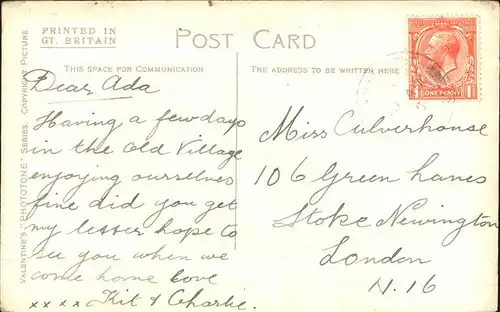 PRINTED IN
GT. BRITAIN
POST CARD
THIS SPACE FOR COMMUNICATION
THE ADDRESS TO BE WRITTEN HERE
VALENTINE'S "PHOTOTONE" SERIES. COPYRIGHT PICTURE
ONE PENNY
Dear Ada
Having a few days
in the Old Village
enjoying ourselves
fine did you get
my lesser hope to
see you when we
come home love
xxxx Kit & Charlie.
Miss Culverhouse
106 Green Lanes
Stoke Newington
London
N.16